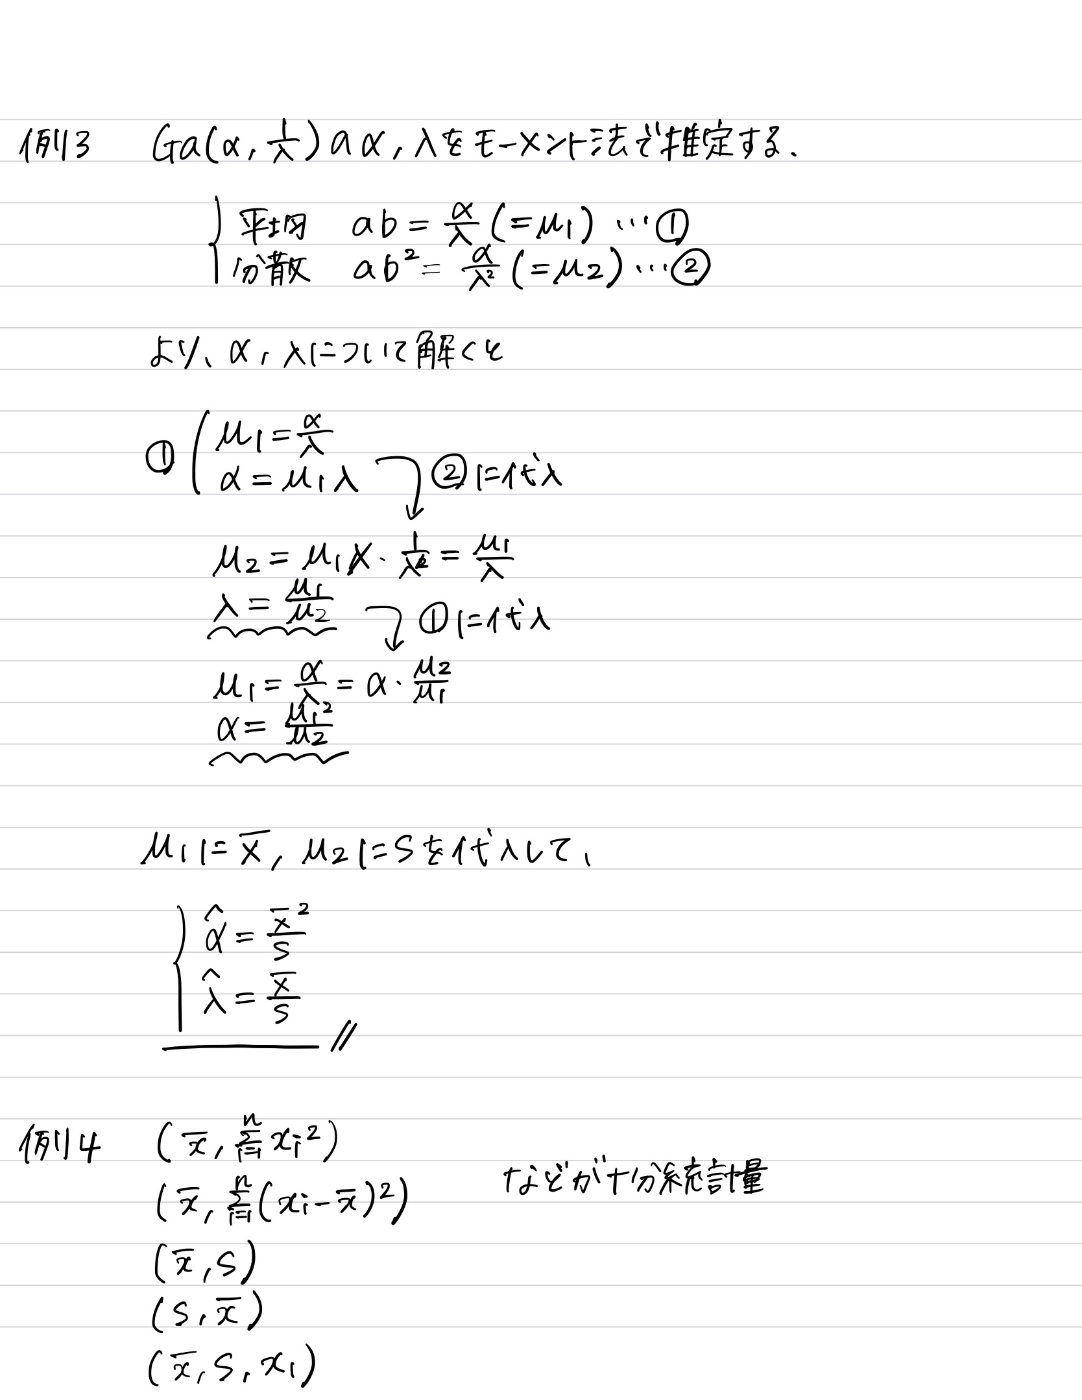 例3 Ga(α, 1/λ)のα, λをモーメント法で推定する、
平均 ab = α/λ (=μ1) …①
分散 ab² = α/λ² (=μ2) …②
より、α, λについて解くと
① μ1 = α/λ
α = μ1λ ②に代入
μ2 = μ1λ・1/λ² = μ1/λ
λ = μ1/μ2 ①に代入
μ1 = α/λ = α・μ2/μ1
α = μ1²/μ2
μ1に x̄, μ2に S を代入して、
α̂ = x̄²/S
λ̂ = x̄/S //
例4 (x̄, Σ_{i=1}^{n} xi²)
(x̄, Σ_{i=1}^{n} (xi - x̄)²) などが十分統計量
(x̄, S)
(S, x̄)
(x̄, S, x1)